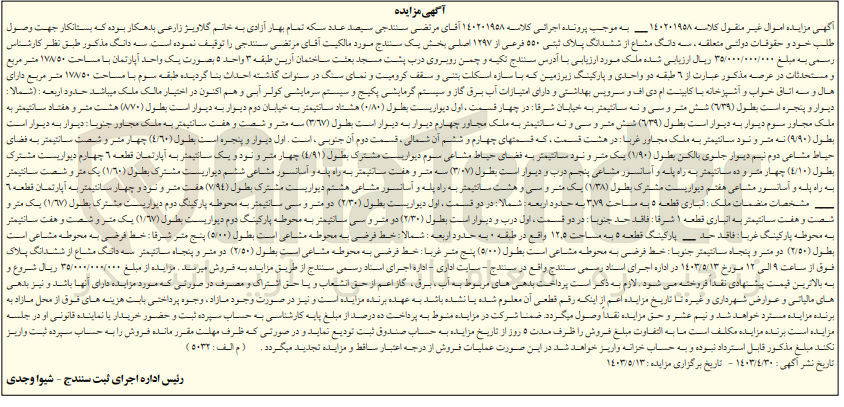 آگهی مزایده
آگهی مزایده اموال غیر منقول کلاسه ۱۴۰۲۰۱۹۵۸ ـــ به موجب پرونده اجرائی کلاسه ۱۴۰۲۰۱۹۵۸ آقای مرتضی سنندجی سیصد عدد سکه تمام بهار آزادی به خانم گلاویژ زارعی بدهکار بوده که بستانکار جهت وصول
طلب خود و حقوقات دولتی متعلقه ، سه دانگ مشاع از ششدانگ پلاک ثبتی ۵۵۰ فرعی از ۱۲۹۷ اصلی بخش یک سنندج مورد مالکیت آقای مرتضی سنندجی را توقیف نموده است. سه دانگ مذکور طبق نظر کارشناس
رسمی به مبلغ ۳۵/۰۰۰/۰۰۰/۰۰۰ ریال ارزیابی شده ملک مورد ارزیابی با آدرس سنندج تکیه و چمن روبروی درب پشت مسجد بعثت ساختمان آرین طبقه ۳ واحد ۵ بصورت یک واحد آپارتمان با مساحت ۱۷۸/۵۰ متر مربع
و مستحدثات در عرصه مذکور عبارت از ۶ طبقه دو واحدی و پارکینگ زیرزمین که با سازه اسکلت بتنی و سقف کرومیت و نمای سنگ در سنوات گذشته احداث بنا گردیده طبقه سوم با مساحت ۱۷۸/۵۰ متر مربع دارای
هال و سه اتاق خواب و آشپزخانه با کابینت ام دی اف و سرویس بهداشتی و دارای امتیازات آب برق گاز و سیستم گرمایشی پکیج و سیستم سرمایشی کولر آبی و هم اکنون در اختیار مالک ملک میباشد حدود اربعه : شمالا :
دیوار و پنجره است بطول (۶/۳۹) شش متر و سی و نه سانتیمتر به خیابان شرقا : در چهار قسمت ، اول دیواریست بطول (۰/۸۰) هشتاد سانتیمتر به خیابان دوم دیوار به دیوار است بطول (۸/۷۰) هشت متر و هفتاد سانتیمتر به
ملک مجاور سوم دیوار به دیوار است بطول (۶/۳۹) شش متر و سی و نه سانتیمتر به ملک مجاور چهارم دیوار به دیوار است بطول (۳/۶۷) سه متر و شصت و هفت سانتیمتر به ملک مجاور جنوبا : دیوار به دیوار است
بطول (۹/۹۰) نه متر و نود سانتیمتر به ملک مجاور غربا : در هشت قسمت ، که قسمتهای چهارم و ششم آن شمالی ، قسمت دوم آن جنوبی ، است . اول دیوار و پنجره است بطول (۴/۶۰) چهار متر و شصت سانتیمتر به فضای
حیاط مشاعی دوم نیم دیوار جلوی بالکن بطول (۱/۹۰) یک متر و نود سانتیمتر به فضای حیاط مشاعی سوم دیواریست مشترک بطول (۴/۹۱) چهار متر و نود و یک سانتیمتر به آپارتمان قطعه ۶ چهارم دیواریست مشترک
بطول (۴/۱۰) چهار متر و ده سانتیمتر به راه پله و آسانسور مشاعی پنجم درب و دیوار است بطول (۳/۰۷) سه متر و هفت سانتیمتر به راه پله و آسانسور مشاعی ششم دیواریست مشترک بطول (۱/۶۰) یک متر و شصت سانتیمتر
به راه پله و آسانسور مشاعی هفتم دیواریست مشترک بطول (۱/۳۸) یک متر و سی و هشت سانتیمتر به راه پله و آسانسور مشاعی هشتم دیواریست مشترک بطول (۷/۹۴) هفت متر و نود و چهار سانتیمتر به آپارتمان قطعه ۶
ـــ مشخصات منضمات ملک : انباری قطعه ۵ به مساحت ۳.۷۹ به حدود اربعه : شمالا : در دو قسمت ، اول دیواریست بطول (۲/۳۰) دو متر و سی سانتیمتر به محوطه پارکینگ دوم دیواریست مشترک بطول (۱/۶۷) یک متر و
شصت و هفت سانتیمتر به انباری قطعه ۱ شرقا : فاقد حد جنوبا : در دو قسمت ، اول درب و دیوار است بطول (۲/۳۰) دو متر و سی سانتیمتر به محوطه پارکینگ دوم دیواریست بطول (۱/۶۷) یک متر و شصت و هفت سانتیمتر
به محوطه پارکینگ غربا : فاقد حد ـــ پارکینگ قطعه ۵ به مساحت ۱۲.۵ واقع در طبقه ۰ به حدود اربعه : شمالا : خط فرضی به محوطه مشاعی است بطول (۵/۰۰) پنج متر شرقا : خط فرضی به محوطه مشاعی است
بطول (۲/۵۰) دو متر و پنجاه سانتیمتر جنوبا : خط فرضی به محوطه مشاعی است بطول (۵/۰۰) پنج متر غربا : خط فرضی به محوطه مشاعی است بطول (۲/۵۰) دو متر و پنجاه سانتیمتر سه دانگ مشاع از ششدانگ پلاک
فوق از ساعت ۹ الی ۱۲ مورخ ۱۴۰۳/۵/۱۳ در اداره اجرای اسناد رسمی سنندج واقع در سنندج سایت اداری اداره اجرای اسناد رسمی سنندج از طریق مزایده به فروش میرسد . مزایده از مبلغ ۳۵/۰۰۰/۰۰۰/۰۰۰ ریال شروع و
به بالاترین قیمت پیشنهادی نقدا فروخته می شود ، لازم به ذکر است پرداخت بدهی های مربوط به آب ، برق ، گاز اعم از حق انشعاب و یا حق اشتراک و مصرف در صورتی که مورد مزایده دارای آنها باشد و نیز بدهی
های مالیاتی و عوارض شهرداری و غیره تا تاریخ مزایده اعم از اینکه رقم قطعی آن معلوم شده یا نشده باشد به عهده برنده مزایده است و نیز در صورت وجود مازاد ، وجوه پرداختی بابت هزینه های فوق از محل مازاد به
برنده مزایده مسترد خواهد شد و نیم عشر و حق مزایده نقداً وصول میگردد. ضمنا شرکت در مزایده منوط به پرداخت ده درصد از مبلغ پایه کارشناسی به حساب سپرده ثبت و حضور خریدار یا نماینده قانونی او در جلسه
مزایده است برنده مزایده مکلف است مابه التفاوت مبلغ فروش را ظرف مدت ۵ روز از تاریخ مزایده به حساب صندوق ثبت تودیع نماید و در صورتی که ظرف مهلت مقرر مانده فروش را به حساب سپرده ثبت واریز
نکند مبلغ مذکور قابل استرداد نبوده و به حساب خزانه واریز خواهد شد در این صورت عملیات فروش از درجه اعتبار ساقط و مزایده تجدید میگردد . ( م الف : ۵۰۳۲ )
تاریخ نشر آگهی : ۱۴۰۳/۴/۳۰ – تاریخ برگزاری مزایده : ۱۴۰۳/۵/۱۳
رئیس اداره اجرای ثبت سنندج - شیوا وجدی